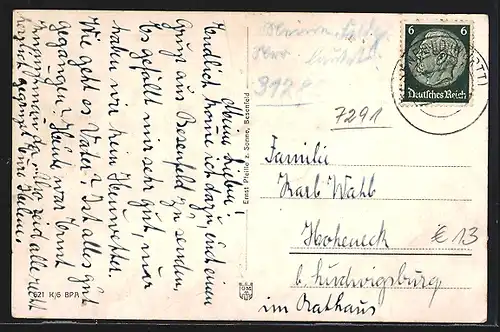 Meine Lieben!
Endlich komme ich dazu, Euch einen
Gruß aus Besenfeld zu senden,
Es gefällt mir sehr gut, nur
haben wir kein Heuwetter.
Wie geht es Vater? Ist alles gut
gegangen? Heute war Ernst
seid alle recht
herzlich gegrüßt Eure Helene
621 K/6 BPA
Ernst Pfeifle z. Sonne, Besenfeld
6 6
Deutsches Reich
7291
Familie
Karl Wahl
Hoheneck
b. Ludwigsburg
im Rathaus
€ 13